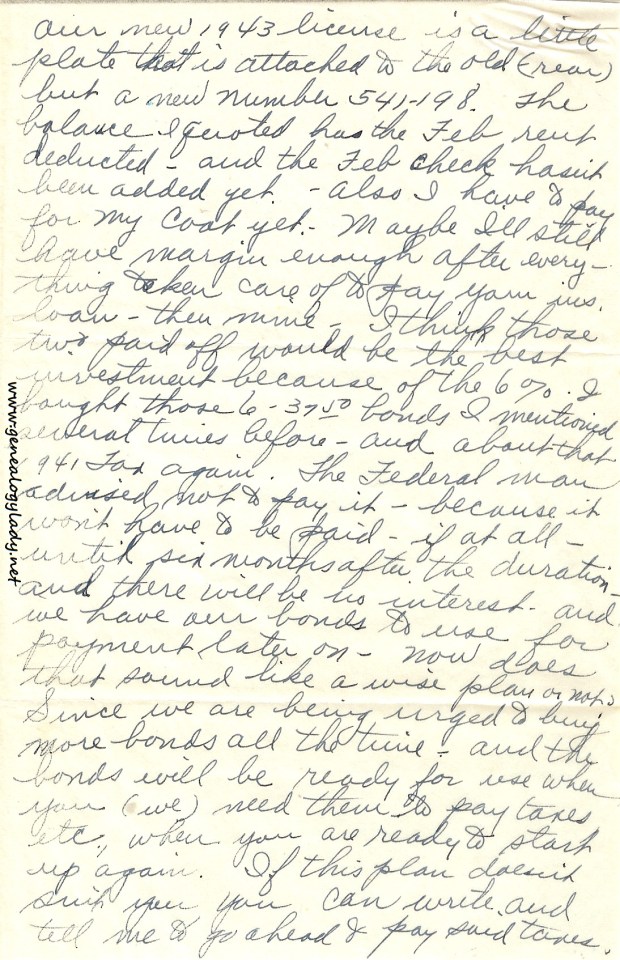 our new 1943 license is a little
plate that is attached to the old (rear)
but a new number 541-198. The
balance I quoted has the Feb rent
deducted - and the Feb check hasn't
been added yet. - also I have to pay
for my coat yet. - Maybe I'll still
have margin enough after every-
thing taken care of to pay your ins.
loan - then mine - I think those
two paid off would be the best
investment because of the 6%. I
bought those 6 - 37.50 bonds I mentioned
several times before - and about that
1941 Tax again. The Federal man
advised not to pay it - because it
won't have to be paid - if at all -
until six months after the duration -
and there will be no interest - and
we have our bonds to use for
payment later on - now does
that sound like a wise plan or not?
Since we are being urged to buy
more bonds all the time - and the
bonds will be ready for use when
you (we) need them to pay taxes
etc, when you are ready to start
up again. If this plan doesn't
suit you you can write and
tell me to go ahead & pay said taxes.
www.genealogylady.net